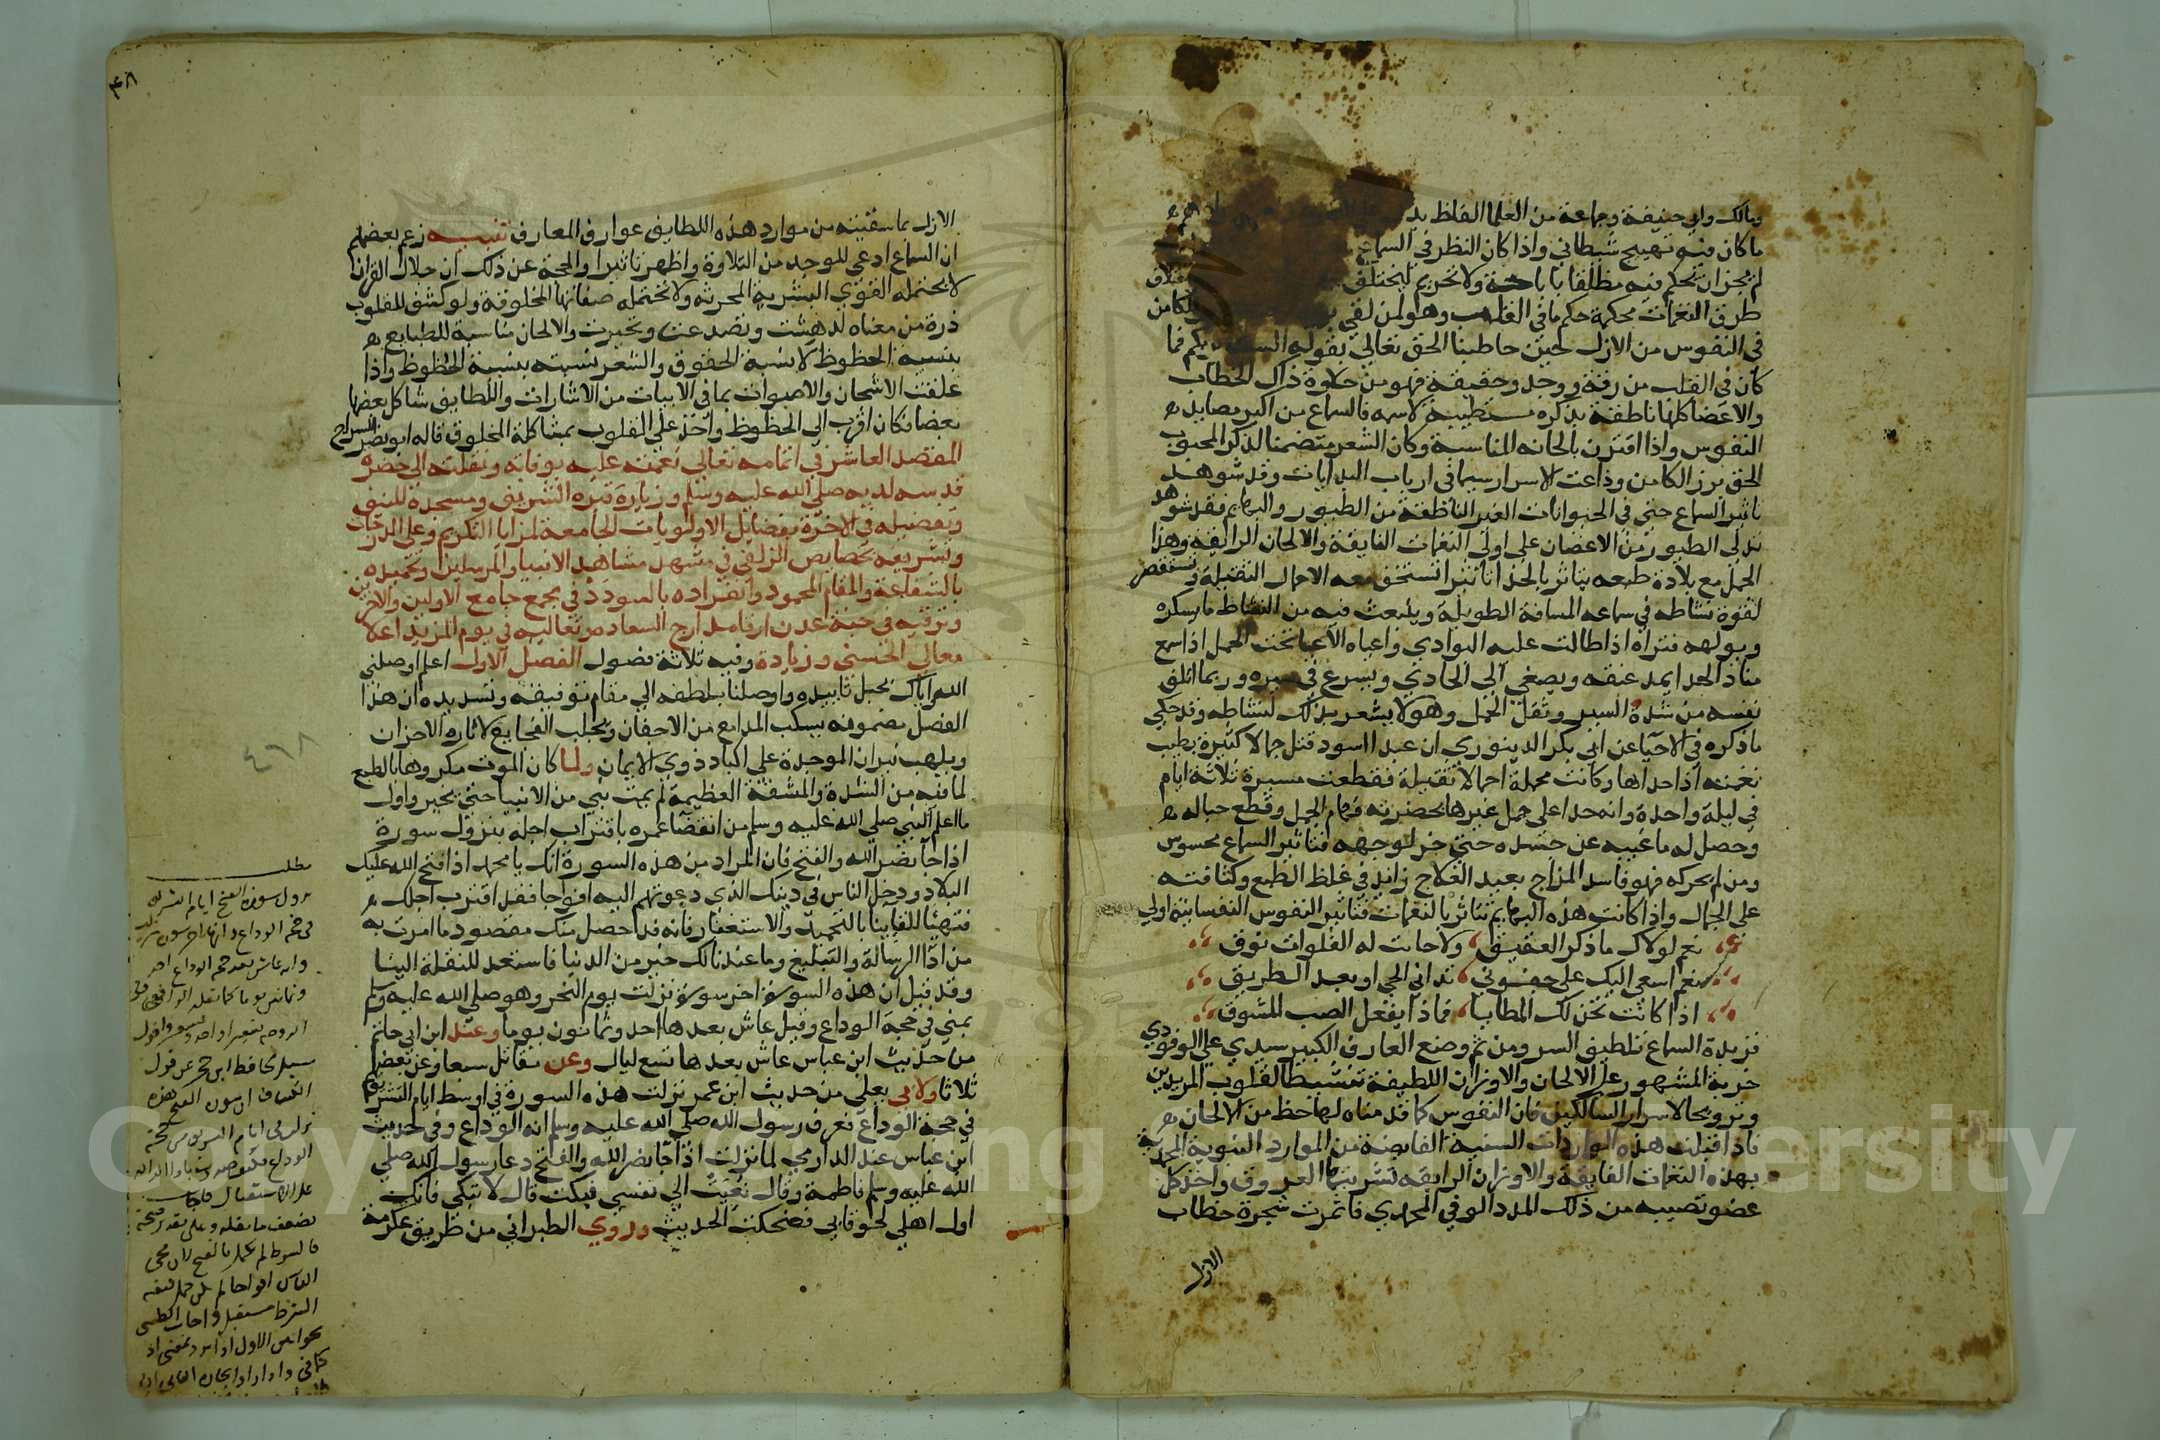 ومالك وابي حنيفة وجماعة من العلما الفاظ
ما كان فيه تهييج شيطاني واذا كان النظر في السماع
لم يجز ان يحكم فيه مطلقا باباحة ولا تحريم
طرق النغمات محكمة حكم ما في القلب وهو لمن لقي
في النفوس من الازل حين خاطبنا الحق تعالي بقوله الست بربكم فما
كان في القلب من رقة ووجد وحقيقة فهو من حلاوة ذاك الخطاب
والاعضا كلها ناطقة بذكره مستطيبة لاسمه فالسماع من اكبر مصايد
النفوس واذا اقترن بالحانه المناسبة وكان الشعر متضمنا لذكر المحبوب
الحق برز الكامن وذاعت الاسرار سيما في ارباب البدايات وقد شوهد
تاثير السماع حتي في الحيوانات الغير الناطقة من الطيور والبهايم فقد شوهد
تدلي الطيور من الاغصان علي اولي النغمات الفايقة والالحان الرايقة وهذا
الجمل مع بلادة طبعه يتاثر بالحدا تاثيرا تستخف معه الاحمال الثقيلة وتستقصر
لقوة نشاطه في سماعه المسافة الطويلة وينبعث فيه من النشاط ما يسكره
ويولهه فتراه اذا طالت عليه البوادي واعياه الاعيا تحت الحمل اذا سمع
مناد الحدا يمد عنقه ويصغي الي الحادي ويسرع في سيره وربما اتلف
نفسه من شدة السير وثقل الحمل وهو لا يشعر بذلك لنشاطه وقد حكي
ما ذكره في الاحيا عن ابي بكر الدينوري ان عبدا اسود قتل جمالا كثيرة بطيب
نغمته اذا حداها وكانت محملة احمالا ثقيلة فقطعت مسيرة ثلاثة ايام
في ليلة واحدة وانه حدا علي جمل غيرها بحضرته فهام الجمل وقطع حباله
وحصل له ما غيبه عن حسه حتي خر لوجهه فتاثير السماع محسوس
ومن لم يحركه فهو فاسد المزاج بعيد العلاج زايد في غلظ الطبع وكثافته
علي الجمال واذا كانت هذه البهايم تتاثر بالنغمات فتاثير النفوس النفسانية اولي
نعم لولاك ما ذكر العقيق ولا جابت له الفلوات نوق
نعم اسعي اليك علي جفوني تداني الحي او بعد الطريق
اذا كانت تحن لك المطايا فماذا يفعل الصب المشوق
فزبدة السماع تلطيف السر ومن ثم وضع العارف الكبير سيدي علي الوفوي
حزبه المشهور علي الالحان والاوزان اللطيفة تنشيطا لقلوب المريدين
وترويحا لاسرار السالكين فان النفوس كما قدمناه لها حظ من الالحان
فاذا قبلت هذه الواردات السنية الفايضة من الموارد النبوية المحمدية
بهذه النغمات الفايقة والاوزان الرايقة تشربتها العروق واخذ كل
عضو نصيبه من ذلك المدد الوفي المحمدي فاثمرت شجرة خطاب
الازل
الازل بما سقيته من موارد هذه اللطايف عوارف المعارف تنبيه زعم بعضهم
ان السماع ادعي للوجد من التلاوة واظهر تاثيرا والحجة عن ذلك ان جلال القران
لا يحتمله القوي البشرية المحدثة ولا تحتمله صفاتها المخلوقة ولو كشف للقلوب
ذرة من معناه لدهشت وتصدعت وتحيرت والالحان مناسبة للطبايع
بنسبة الحظوظ لا نسبة الحقوق والشعر نسبته بنسبة الحظوظ واذا
علقت الاشجان والاصوات بما في الابيات من الاشارات واللطايف شاكل بعضها
بعضا فكان اقرب الي الحظوظ واخف علي القلوب بمشاكلة المخلوق قاله ابو نصر السراج
المقصد العاشر في اتمامه تعالي نعمته عليه بوفاته ونقلته الي حضرة
قدسه لديه صلي الله عليه وسلم وزيارة قبره الشريف ومسجده المنيف
وتفضيله في الاخرة بفضايل الاوليات الجامعة لمزايا التكريم وعلي الدرجات
وتشريفه بخصايص الزلفي في مشهد مشاهد الانبيا والمرسلين وتحميده
بالشفاعة والمقام المحمود وانفراده بالسودد في مجمع جامع الاولين والاخرين
وترقيه في جنة عدن ارقا مدارج السعادة وتعاليه في يوم المزيد اعلا
معالي الحسني وزيادة وفيه ثلاثة فصول الفصل الاول اعلم اوصلني
الله واياك بحبل تاييده واوصلنا بلطفه الي مقام توفيقه وتسديده ان هذا
الفصل مضمونه يسكب المدامع من الاجفان ويجلب الفجايع لاثارة الاحزان
ويلهب نيران الموجدة علي اكباد ذوي الايمان ولما كان الموت مكروها بالطبع
لما فيه من الشدة والمشقة العظيمة لم يمت نبي من الانبيا حتي يخير واول
ما اعلم النبي صلي الله عليه وسلم من انقضا عمره باقتراب اجله بنزول سورة
اذا جا نصر الله والفتح فان المراد من هذه السورة انك يا محمد اذا فتح الله عليك
البلاد ودخل الناس في دينك الذي دعوتهم اليه افواجا فقد اقترب اجلك
فتهيا للقاينا بالتحميد والاستغفار فانه قد حصل منك مقصود ما امرت به
من ادا الرسالة والتبليغ وما عندنا لك خير من الدنيا فاستعد للنقلة الينا
وقد قيل ان هذه السورة اخر سورة نزلت يوم النحر وهو صلي الله عليه وسلم
بمني في حجة الوداع وقيل عاش بعدها احد وثمانون يوما وعند ابن ابي حاتم
من حديث ابن عباس عاش بعدها تسع ليال وعن مقاتل سبعا وعن بعضهم
ثلاثا ولابي يعلي من حديث ابن عمر نزلت هذه السورة في اوسط ايام التشريق
في حجة الوداع فعرف رسول الله صلي الله عليه وسلم انه الوداع وفي حديث
ابن عباس عند الدارمي لما نزلت اذا جا نصر الله والفتح دعا رسول الله صلي
الله عليه وسلم فاطمة وقال نعيت الي نفسي فبكت قال لا تبكي فانك
اول اهلي لحوقا بي فضحكت الحديث وروي الطبراني من طريق عكرمة
مطلب
نزول سورة الفتح ايام التشريق
في حجة الوداع
وانه عاش بعد حجة الوداع احد
وثمانين يوما
الحافظ ابن حجر عن قول
الكشاف ان سورة الفتح هذه
نزلت في ايام التشريق من حجة
الوداع
٤٦٨